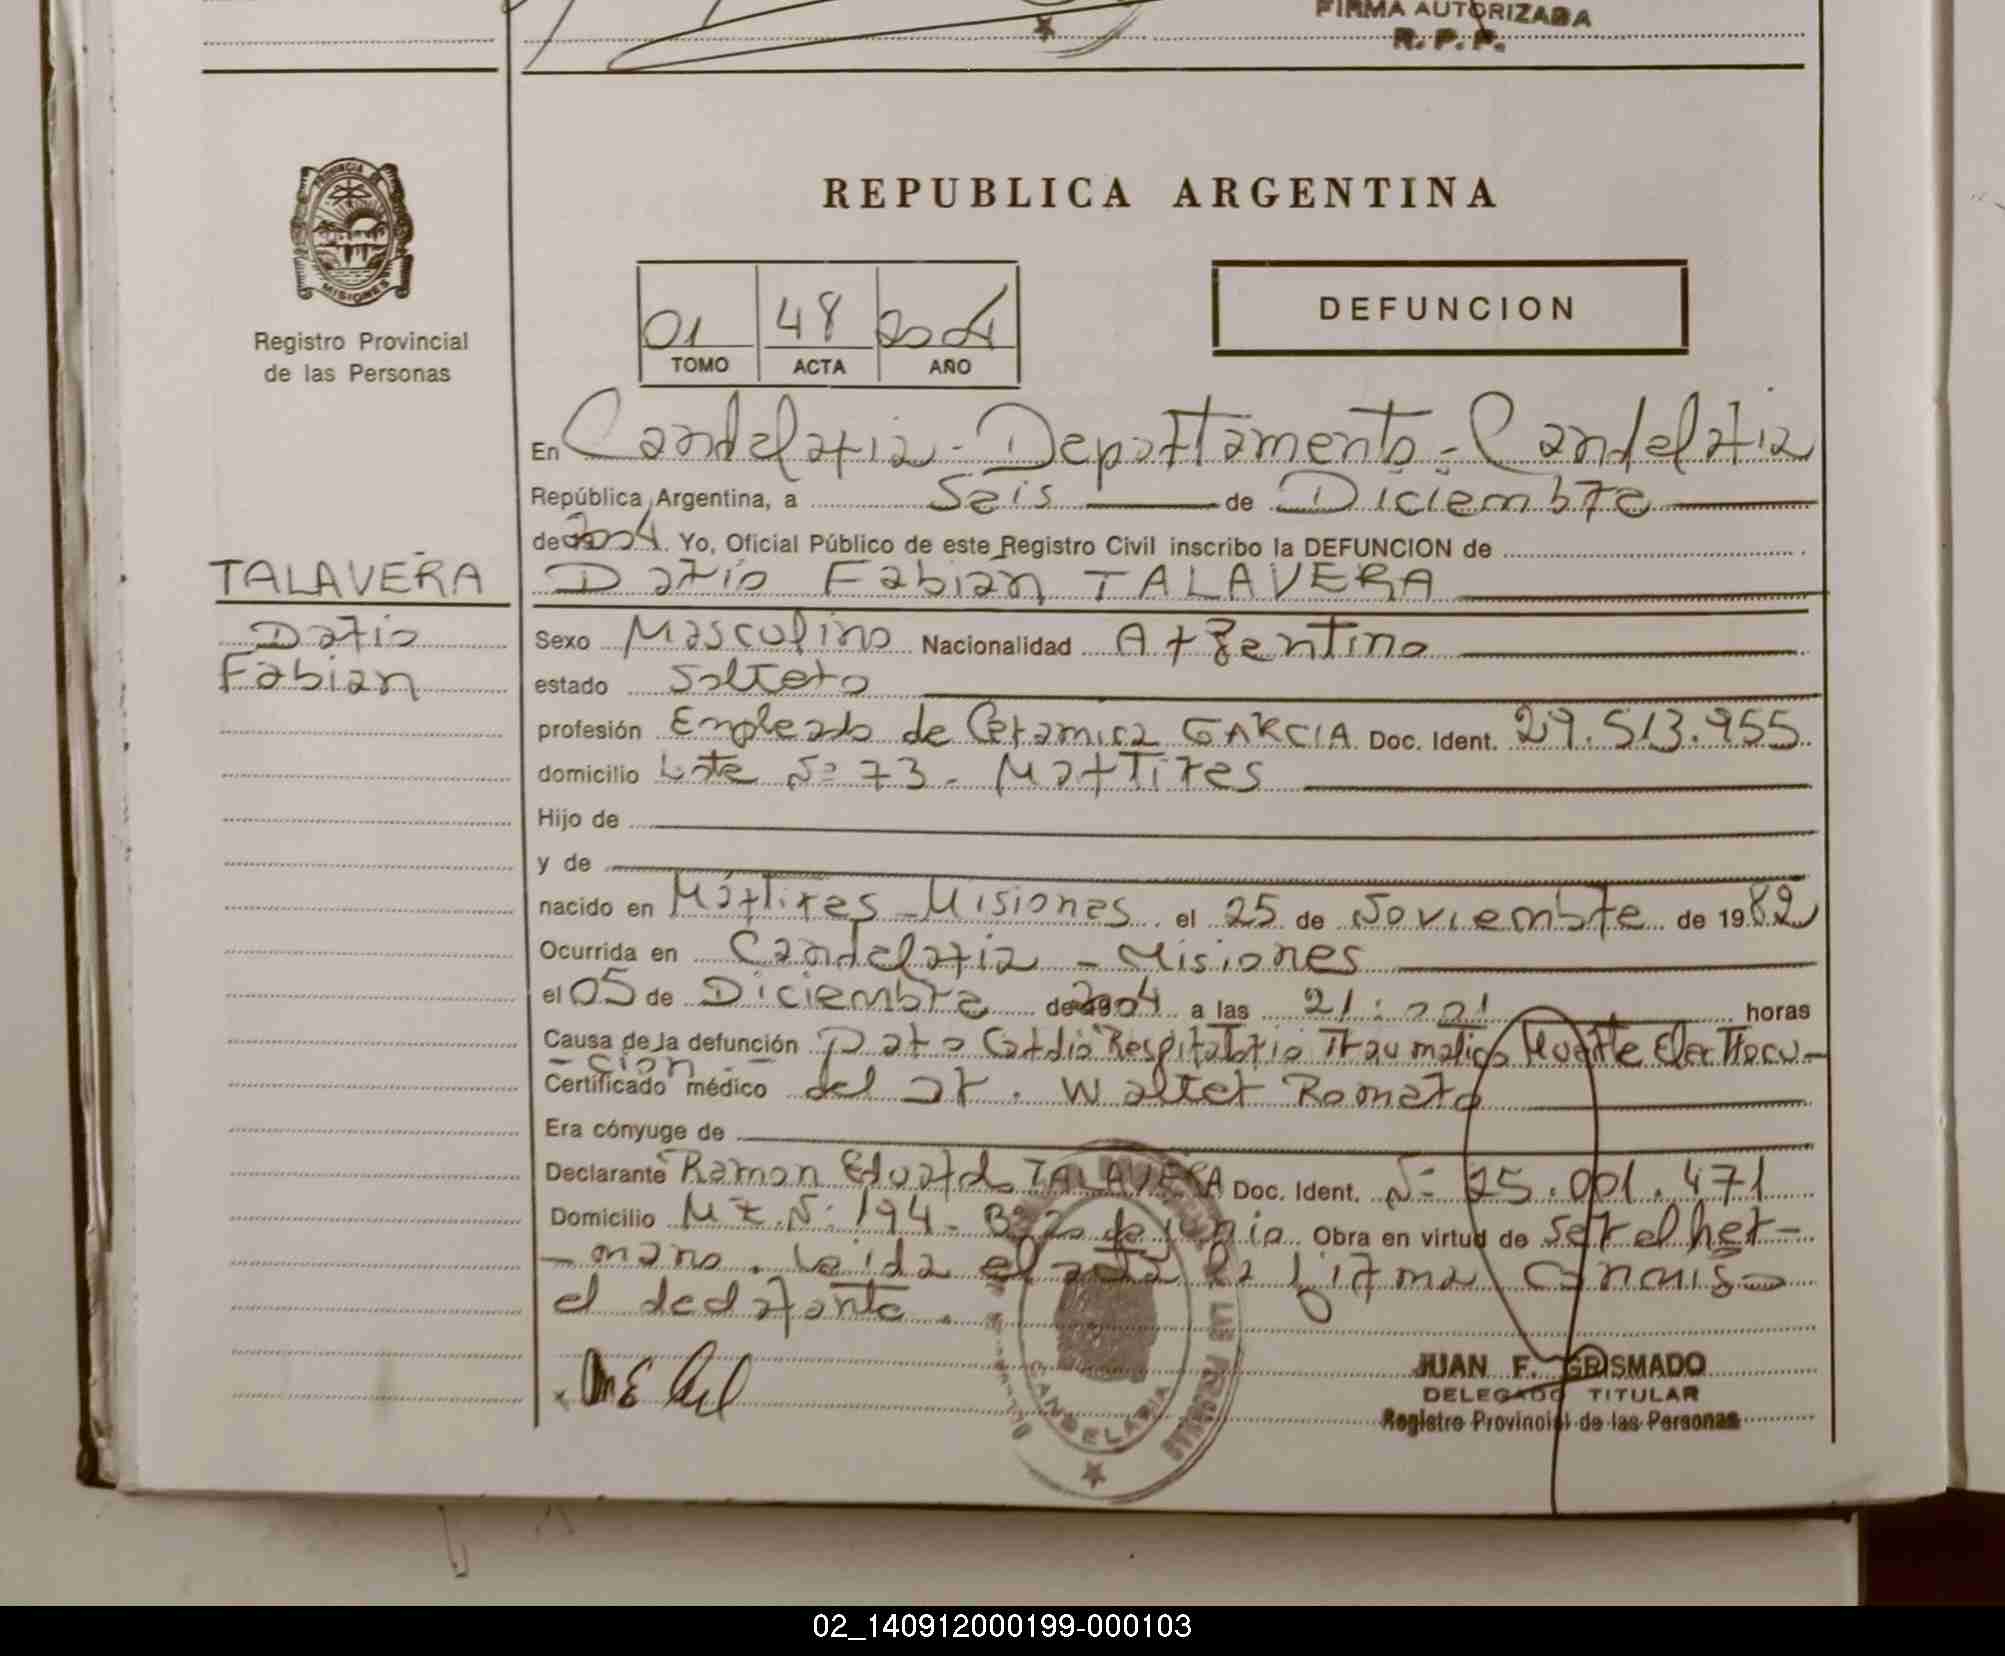 FIRMA AUTORIZADA
R. P. P.
PROVINCIA DE
MISIONES
Registro Provincial
de las Personas
REPUBLICA ARGENTINA
01 48 2004
TOMO ACTA AÑO
DEFUNCION
En Candelaria - Departamento - Candelaria
República Argentina, a Seis de Diciembre
de 2004. Yo, Oficial Público de este Registro Civil inscribo la DEFUNCION de
TALAVERA
Dario Fabian TALAVERA
Dario
Fabian
Sexo Masculino Nacionalidad Argentino
estado Soltero
profesión Empleado de Ceramica GARCIA Doc. Ident. 29.513.955
domicilio Lote Nº 73 - Martires
Hijo de
y de
nacido en Mártires - Misiones el 25 de Noviembre de 1982
Ocurrida en Candelaria - Misiones
el 05 de Diciembre de 2004 a las 21: horas
Causa de la defunción Paro Cardio Respiratorio Traumatico Muerte Electrocu-
- cion -
Certificado médico del Dr. Walter Romero
Era cónyuge de
Declarante Ramon Eduardo TALAVERA Doc. Ident. Nº 25.001.471
Domicilio Mz. Nº 194 - Bº 20 de junio Obra en virtud de ser el her-
- mano. Leida el acta la firma conmigo
el declarante.
JUAN F. GRISMADO
DELEGADO TITULAR
Registro Provincial de las Personas
CANDELARIA
02_140912000199-000103